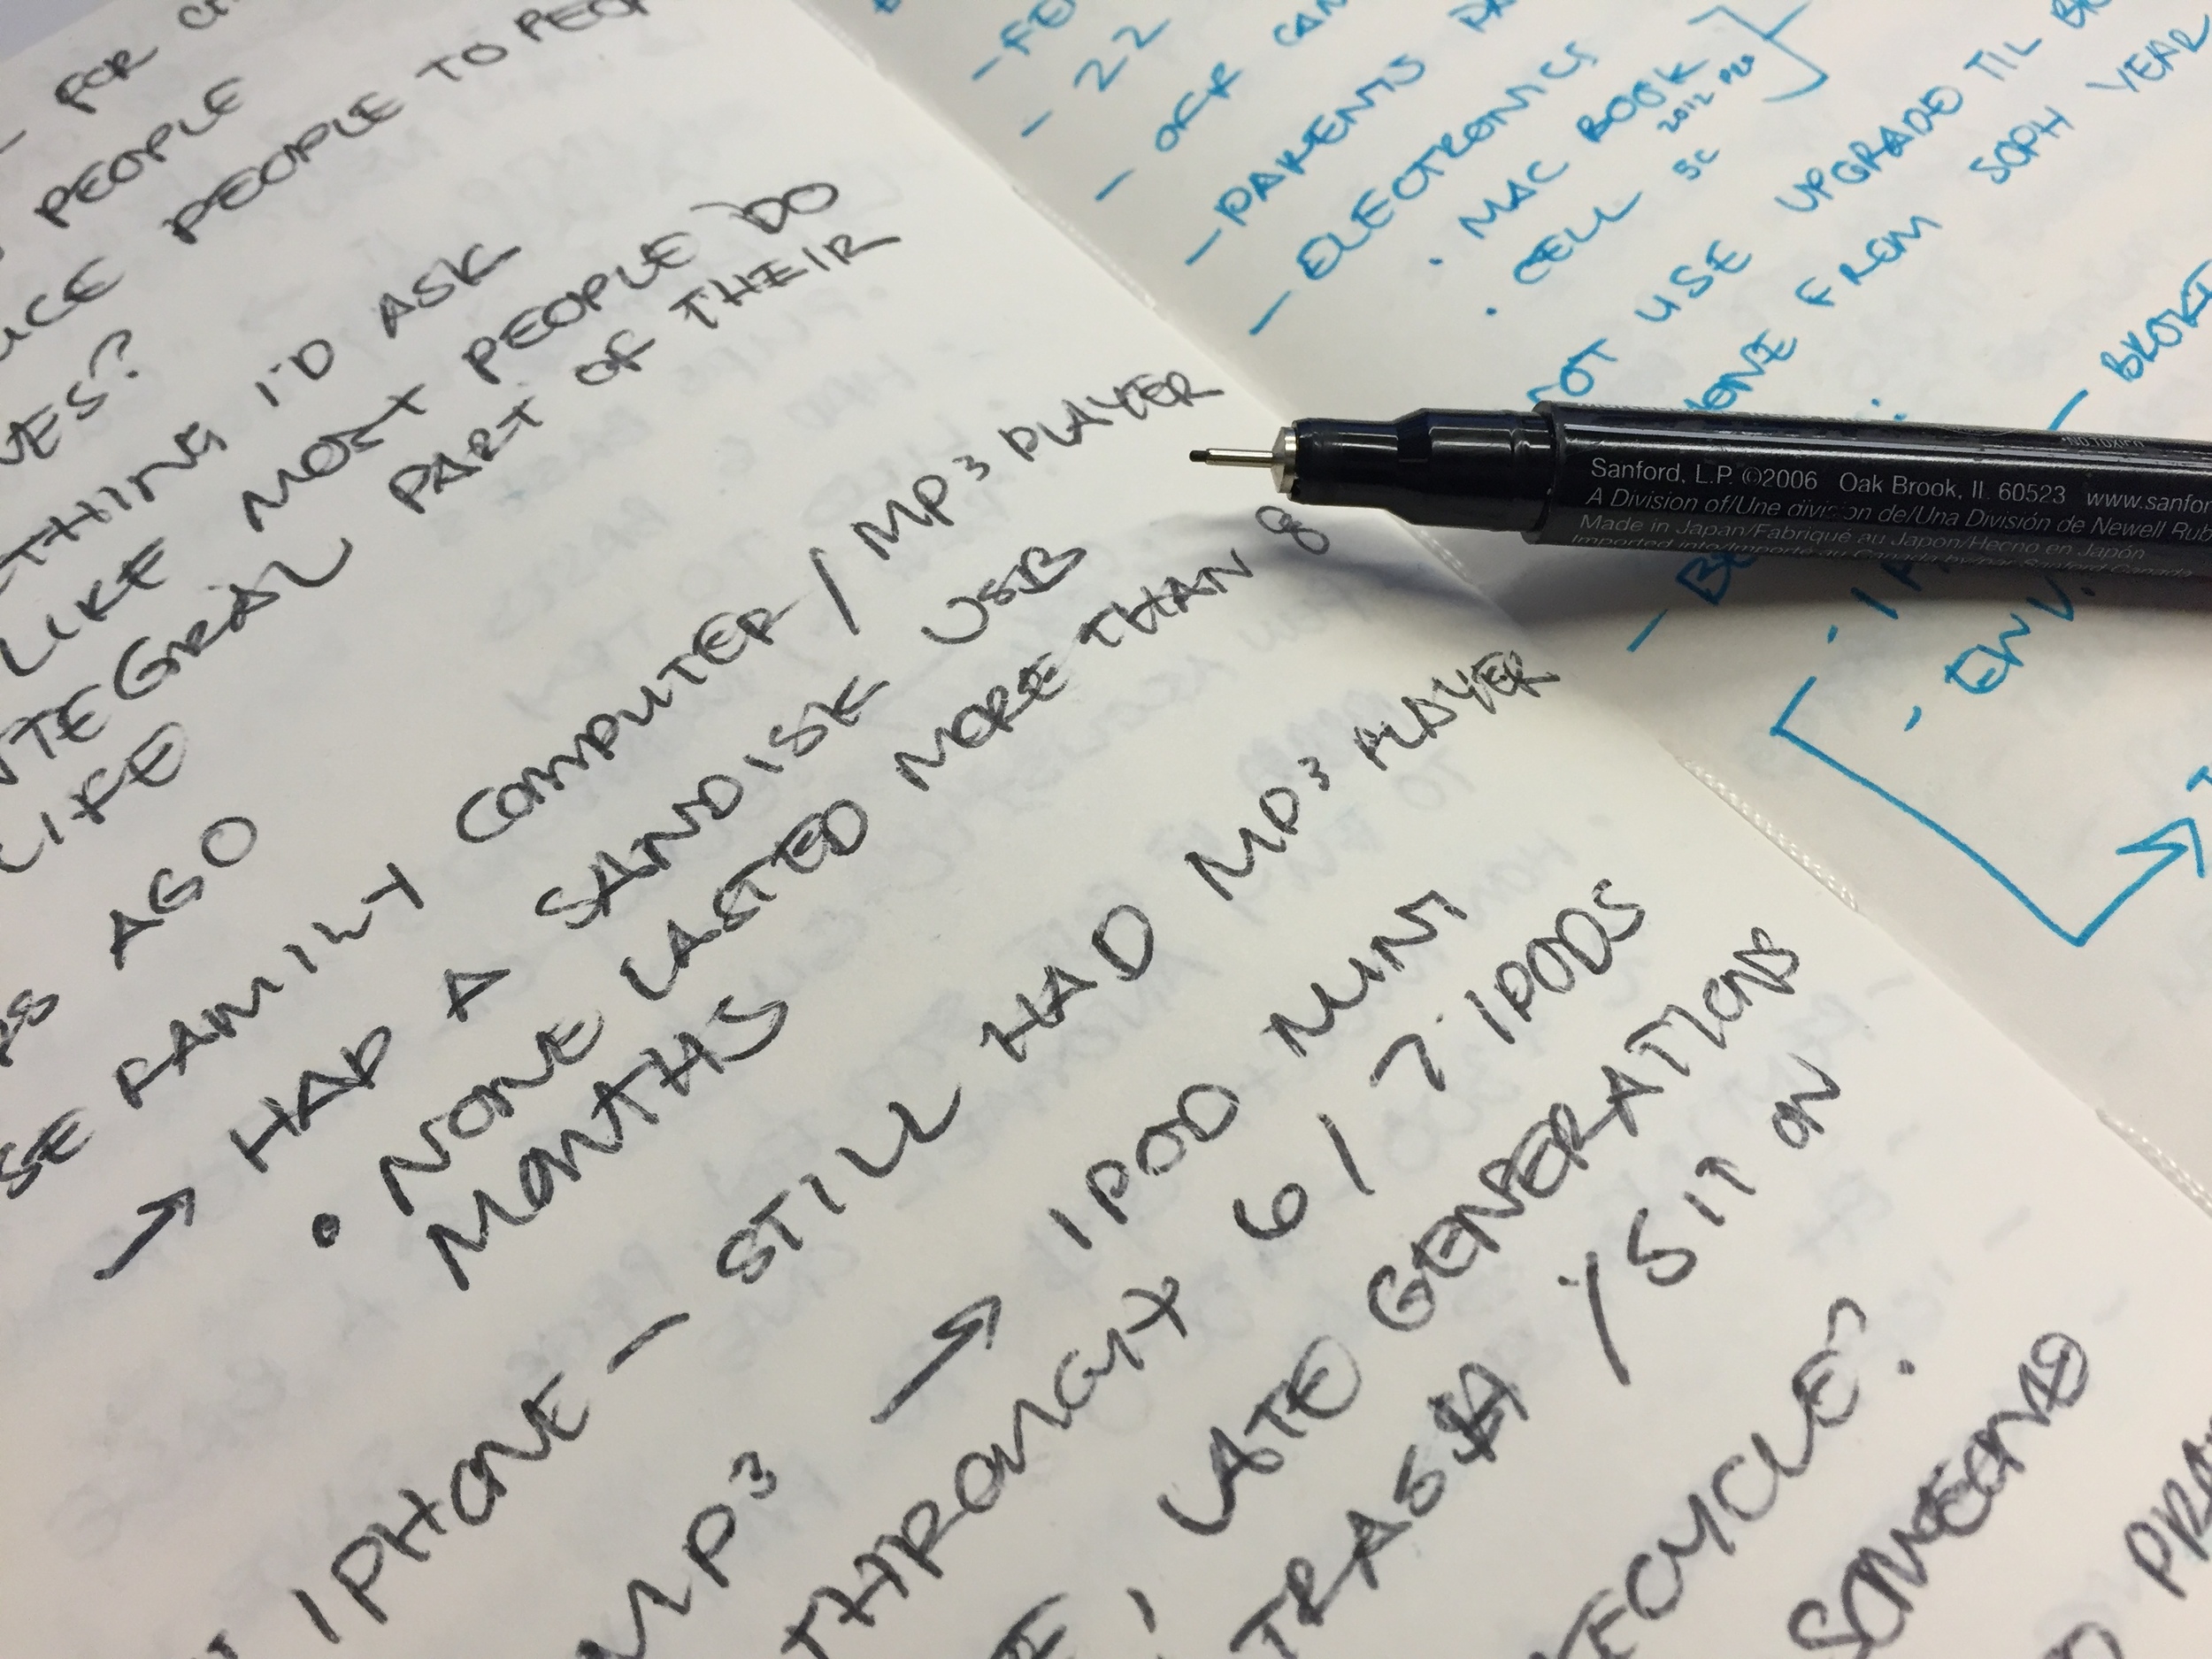 - FOR
PEOPLE
PEOPLE TO PEOP
I'D ASK
LIKE MOST PEOPLE DO
PART OF THEIR
LIFE
AGO
FAMILY COMPUTER / MP3 PLAYER
→ HAD A SANDISK USB
• NONE LASTED MORE THAN 8
MONTHS
IPHONE - STILL HAD MP3 PLAYER
MP3 → IPOD MINI
6 / 7 IPODS
LATE GENERATIONS
TRASH / SIT ON
RECYCLE?
SOMEONE
- 22
- OFF
- PARENTS
- ELECTRONICS
• MAC BOOK
2012 PRO
• CELL 5C
NOT USE UPGRADE TIL
FROM SOPH YEAR
- ENV.
•NO TOXICO
Sanford, L.P. ©2006 Oak Brook, IL 60523 www.sanfor
A Division of/Une division de/Una División de Newell Rub
Made in Japan/Fabriqué au Japon/Hecho en Japón
Imported into/Importé au Canada by/par Sanford Canada